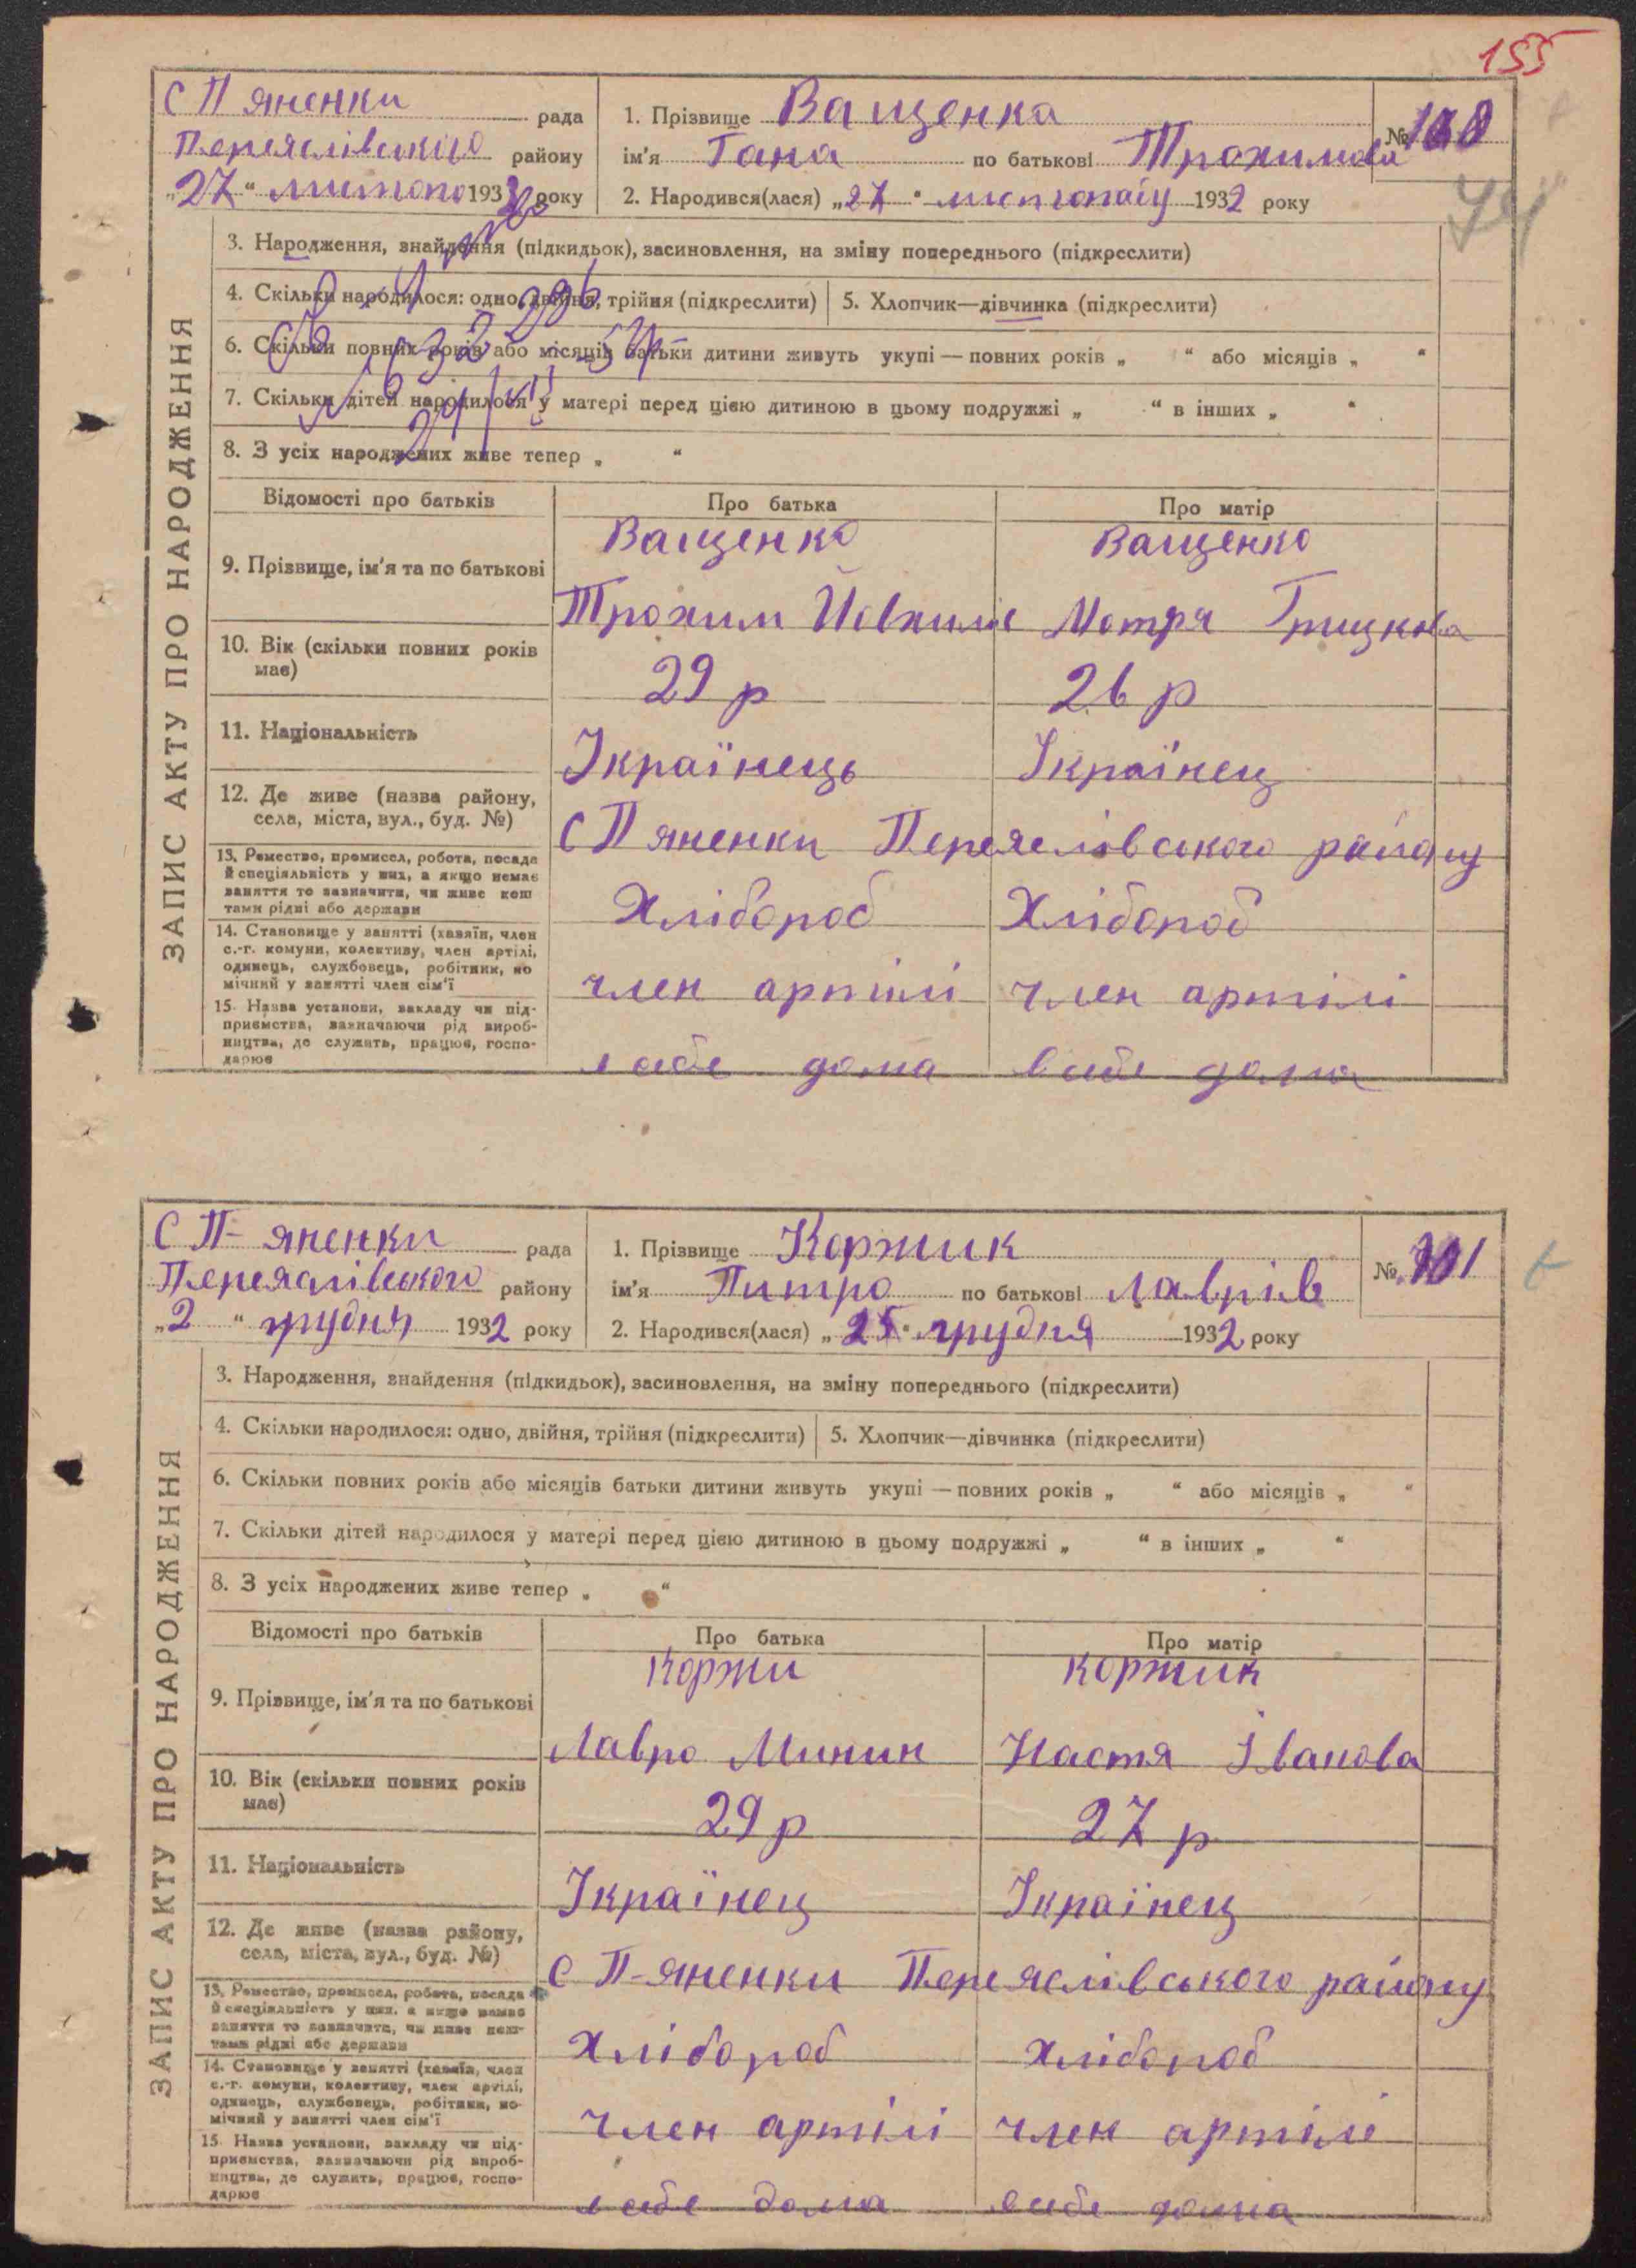 155
С Пяненки рада
Переяслівського району
„27“ листопо 1932 року
1. Прізвище Ващенка
ім'я Гана по батькові Трохимова
№
2. Народився(лася) „27“ листопаду 1932 року
ЗАПИС АКТУ ПРО НАРОДЖЕННЯ
3. Народження, знайдення (підкидьок), засиновлення, на зміну попереднього (підкреслити)
4. Скільки народилося: одно, двійня, трійня (підкреслити) 5. Хлопчик—дівчинка (підкреслити)
6. Скільки повних років або місяців батьки дитини живуть укупі — повних років „ “ або місяців „ “
7. Скільки дітей народилося у матері перед цією дитиною в цьому подружжі „ “ в інших „ “
8. З усіх народжених живе тепер „ “
Відомості про батьків Про батька Про матір
9. Прізвище, ім'я та по батькові
Ващенко Ващенко
Трохим Мотря Грицкова
10. Вік (скільки повних років має)
29 р 26 р
11. Національність
Українець Українец
12. Де живе (назва району, села, міста, вул., буд. №)
С Пяненки Переяслівського району
13. Ремество, промисел, робота, посада
й спеціяльність у них, а якщо немає
заняття то зазначити, чи живе кош
тами рідні або держави
Хлібороб Хлібороб
14. Становище у занятті (хазяїн, член
с.-г. комуни, колективу, член артілі,
одинець, службовець, робітник, по
мічний у занятті член сім'ї
член артілі член артілі
15. Назва установи, закладу чи під-
приємства, зазначаючи рід вироб-
ництва, де служить, працює, госпо-
дарює
в себе дома в себе дома
С П-яненки рада
Переяслівського району
„2“ грудня 1932 року
1. Прізвище Коржик
ім'я Питро по батькові Лаврів
№ 101
2. Народився(лася) „25“ грудня 1932 року
ЗАПИС АКТУ ПРО НАРОДЖЕННЯ
3. Народження, знайдення (підкидьок), засиновлення, на зміну попереднього (підкреслити)
4. Скільки народилося: одно, двійня, трійня (підкреслити) 5. Хлопчик—дівчинка (підкреслити)
6. Скільки повних років або місяців батьки дитини живуть укупі — повних років „ “ або місяців „ “
7. Скільки дітей народилося у матері перед цією дитиною в цьому подружжі „ “ в інших „ “
8. З усіх народжених живе тепер „ “
Відомості про батьків Про батька Про матір
9. Прізвище, ім'я та по батькові
Коржи Коржик
Лавро Минин Настя Іванова
10. Вік (скільки повних років має)
29 р 27 р
11. Національність
Українец Українец
12. Де живе (назва району, села, міста, вул., буд. №)
С П-яненки Переяслівського району
13. Ремество, промисел, робота, посада
й спеціяльність у них, а якщо немає
заняття то зазначити, чи живе кош-
тами рідні або держави
Хлібороб Хлібороб
14. Становище у занятті (хазяїн, член
с.-г. комуни, колективу, член артілі,
одинець, службовець, робітник, по-
мічний у занятті член сім'ї
член артілі член артілі
15. Назва установи, закладу чи під-
приємства, зазначаючи рід вироб-
ництва, де служить, працює, госпо-
дарює
в себе дома в себе дома